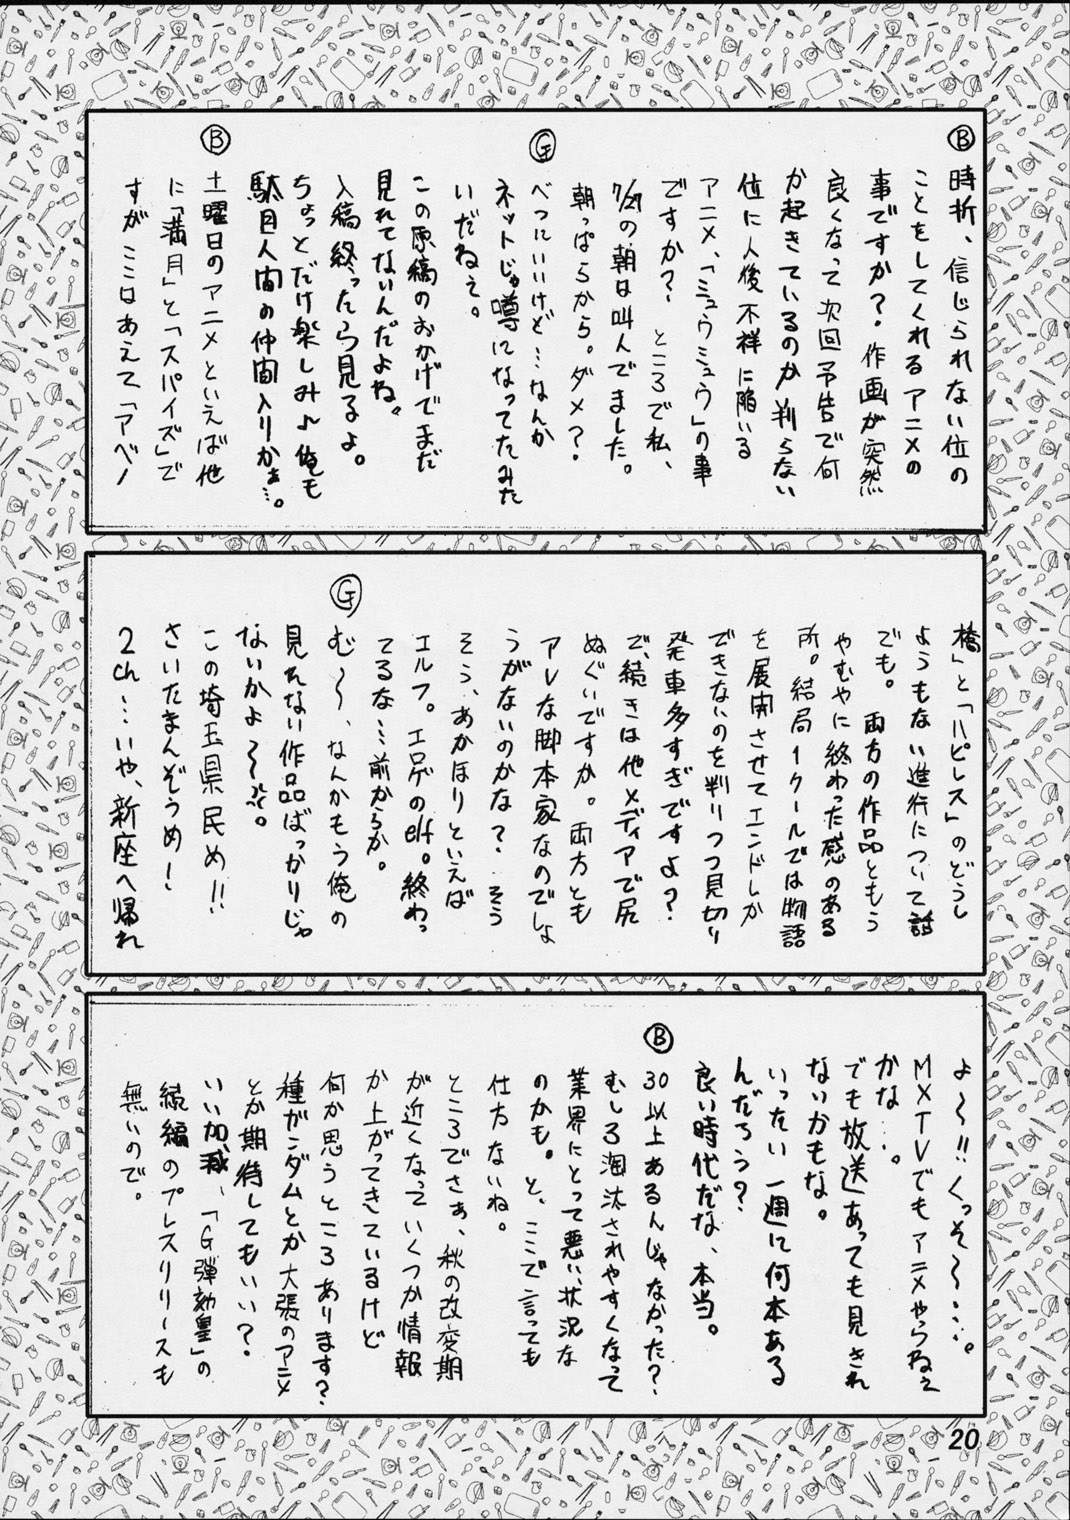 Ⓑ時折、信じられない位の
ことをしてくれるアニメの
事ですか？作画が突然
良くなって次回予告で何
が起きているのか判らない
位に人後不祥に陥いる
アニメ、「ミュウミュウ」の事
ですか？ところで私、
7/27の朝は叫んでました。
朝っぱらから。ダメ？
Ⓖべつにいいけど…なんか
ネットじゃ噂になってたみた
いだねぇ。
この原稿のおかげでまだ
見れてないんだよね。
入稿終ったら見るよ。
ちょっとだけ楽しみ♪俺も
駄目人間の仲間入りかぁ…。
Ⓑ土曜日のアニメといえば他
に「満月」と「スパイズ」で
すがここはあえて「アベノ
橋」と「ハピレス」のどうし
ようもない進行について話
でも。両方の作品ともう
やむやに終わった感のある
所。結局1クールでは物語
を展開させてエンドしか
できないのを判りつつ見切り
発車多すぎですよ？
で、続きは他メディアで尻
ぬぐいですか。両方とも
アレな脚本家なのでしょ
うがないのかな？そう
そう、あかほりといえば
エルフ。エロゲのelf。終わっ
てるな…前からか。
Ⓖむ〜、なんかもう俺の
見れない作品ばっかりじゃ
ないかよ〜。
この埼玉県民め!!
さいたまんぞうめ！
2ch…いや、新座へ帰れ
よ〜!!くっそ〜…。
MXTVでもアニメやらねえ
かな…。
でも放送あっても見きれ
ないかもな。
いったい一週に何本ある
んだろう？
良い時代だな、本当。
Ⓑ30以上あるんじゃなかった？
むしろ淘汰されやすくなって
業界にとって悪い状況な
のかも。と、ここで言っても
仕方ないね。
ところでさぁ、秋の改変期
が近くなっていくつか情報
が上がってきているけど
何か思うところあります？
種ガンダムとか大張のアニメ
とか期待してもいい？
いい加減、「G弾劾凰」の
続編のプレスリリースも
無いので。
20